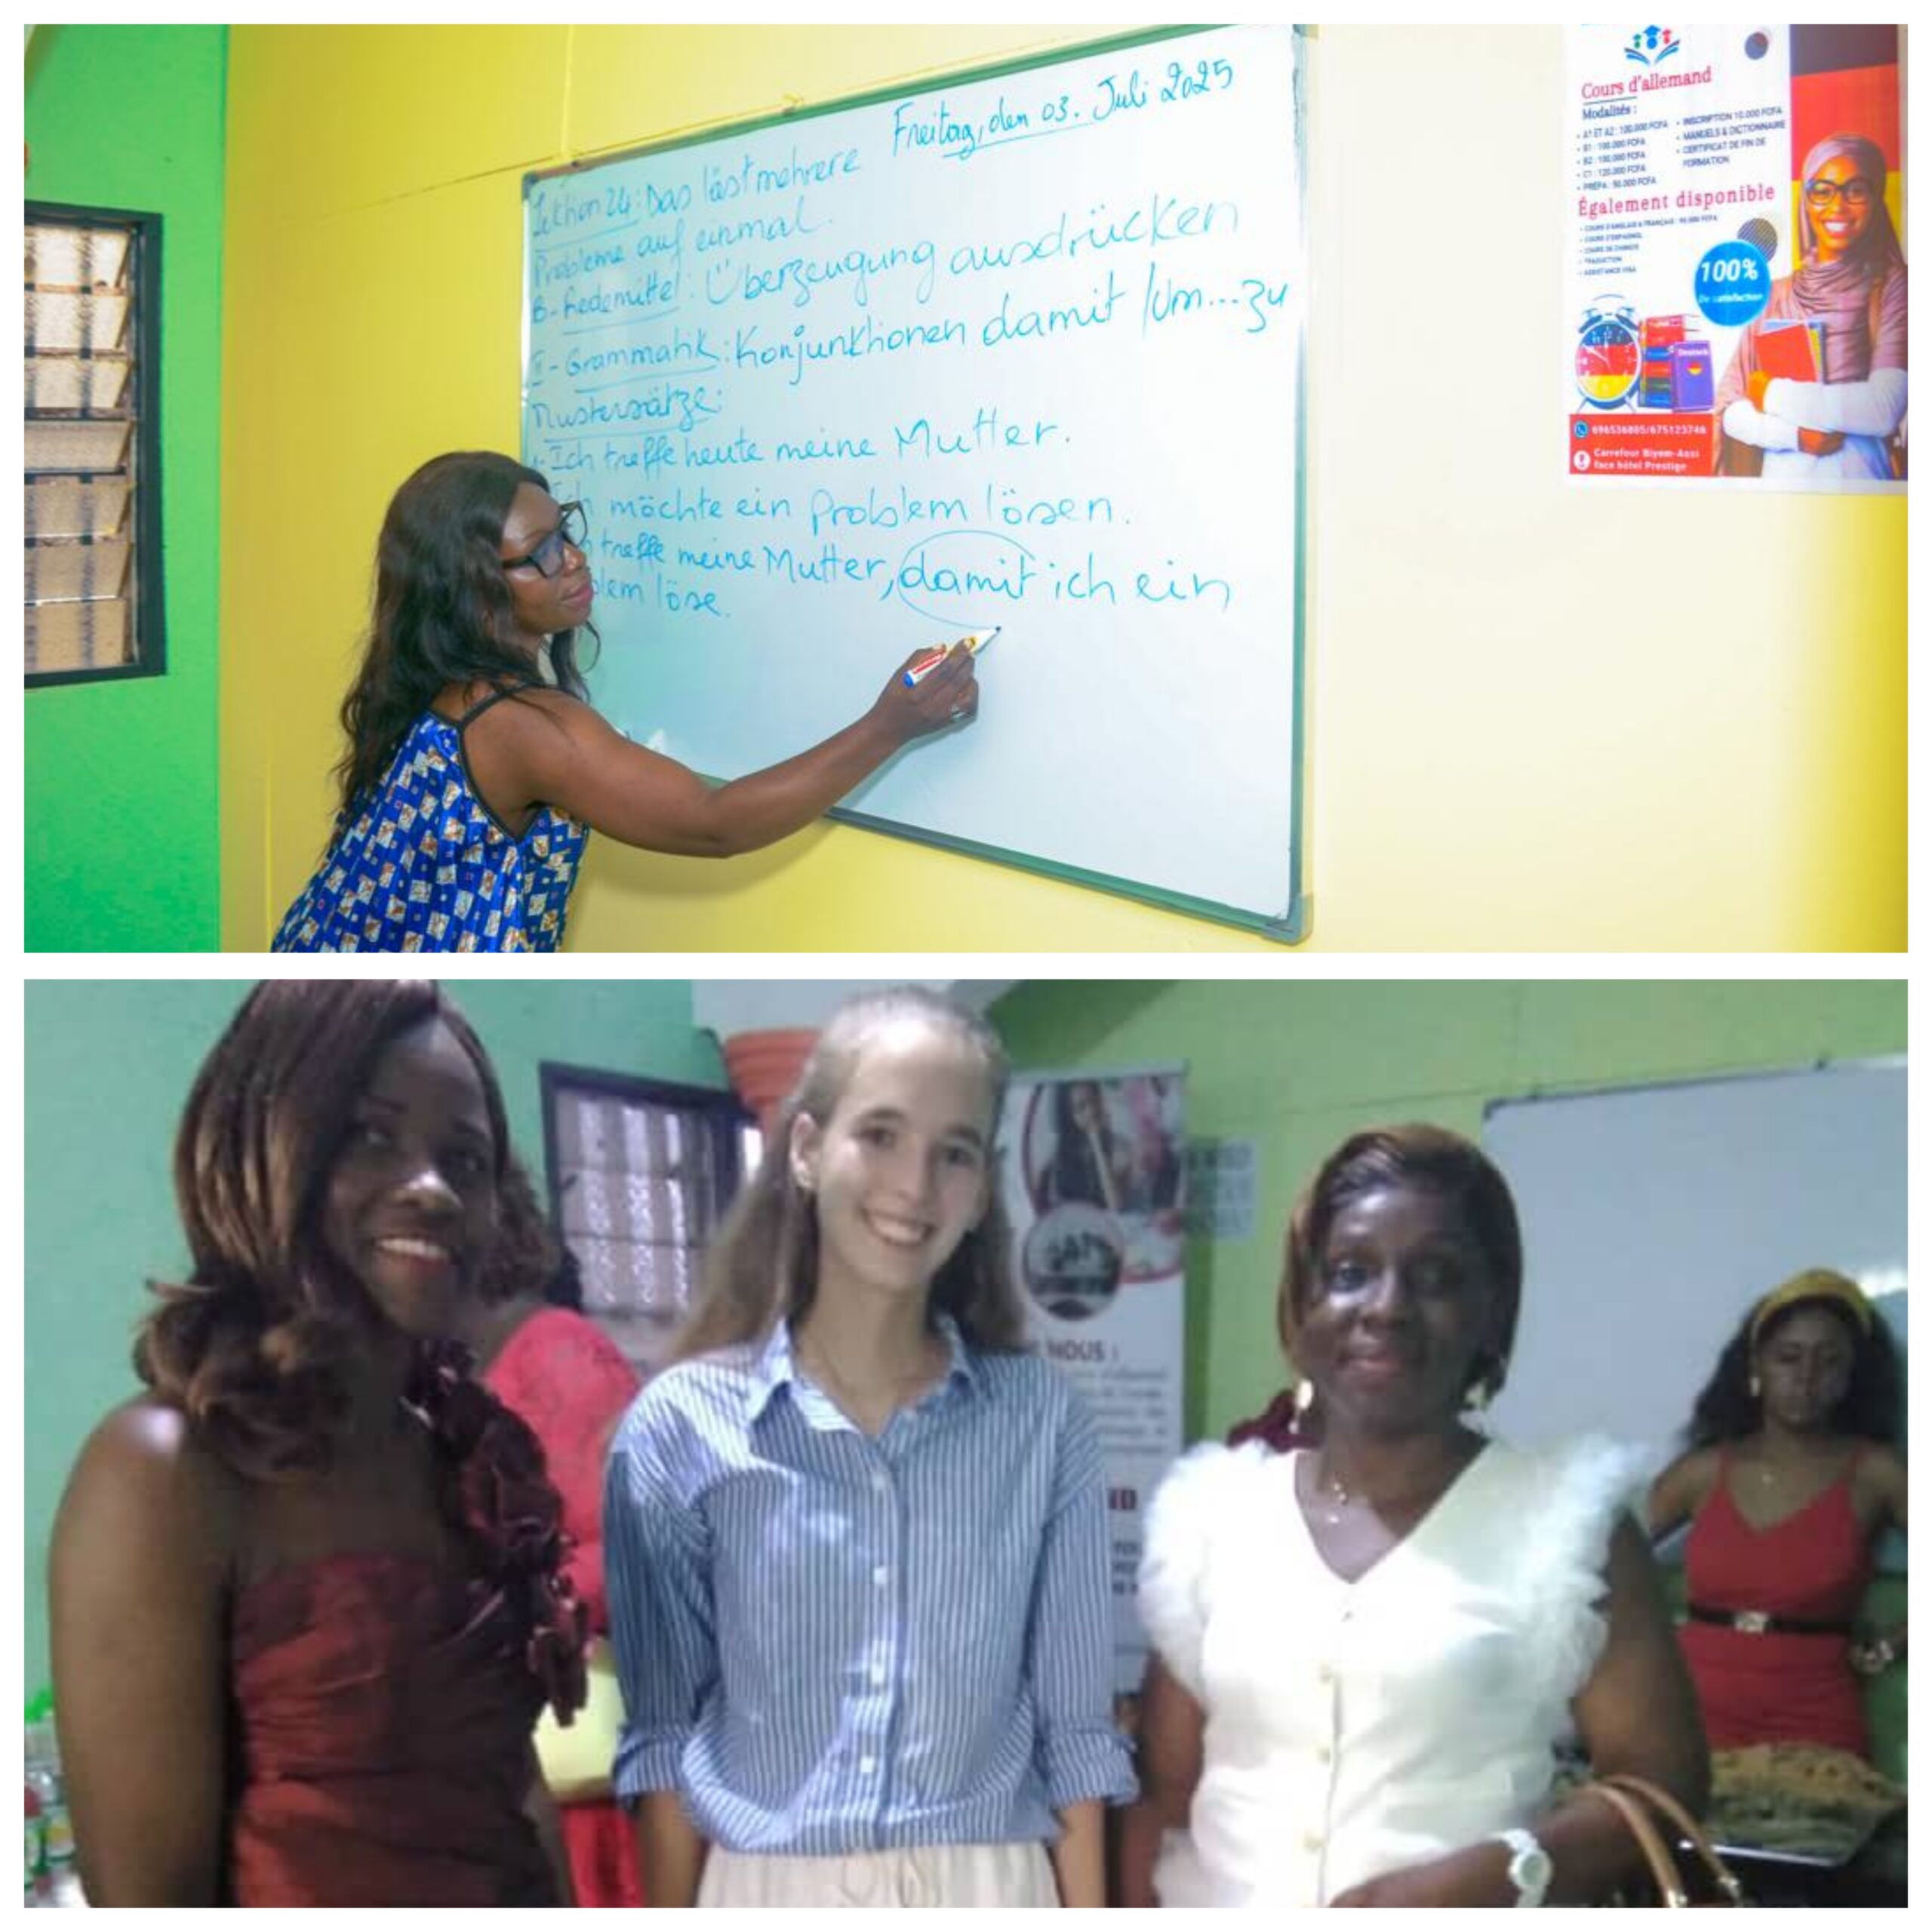 Freitag, den 03. Juli 2025
Lektion 24: Das löst mehrere
Probleme auf einmal.
B- Redemittel: Überzeugung ausdrücken
II- Grammatik: Konjunktionen damit /um...zu
Mustersätze:
Ich treffe heute meine Mutter.
möchte ein Problem lösen.
treffe meine Mutter, damit ich ein
löse.
Cours d'allemand
Modalités :
• A1 ET A2 : 100.000 FCFA
• B1 : 100.000 FCFA
• B2 : 100.000 FCFA
• C1 : 120.000 FCFA
• PRÉPA : 50.000 FCFA
• INSCRIPTION 10.000 FCFA
• MANUELS & DICTIONNAIRE
• CERTIFICAT DE FIN DE
FORMATION
Également disponible
• COURS D'ESPAGNOL
• COURS DE CHINOIS
• TRADUCTION
• ASSISTANCE VISA
100%
De satisfaction
Deutsch
696536805/675123746
Carrefour Biyem-Assi
face hôtel Prestige
NOUS :